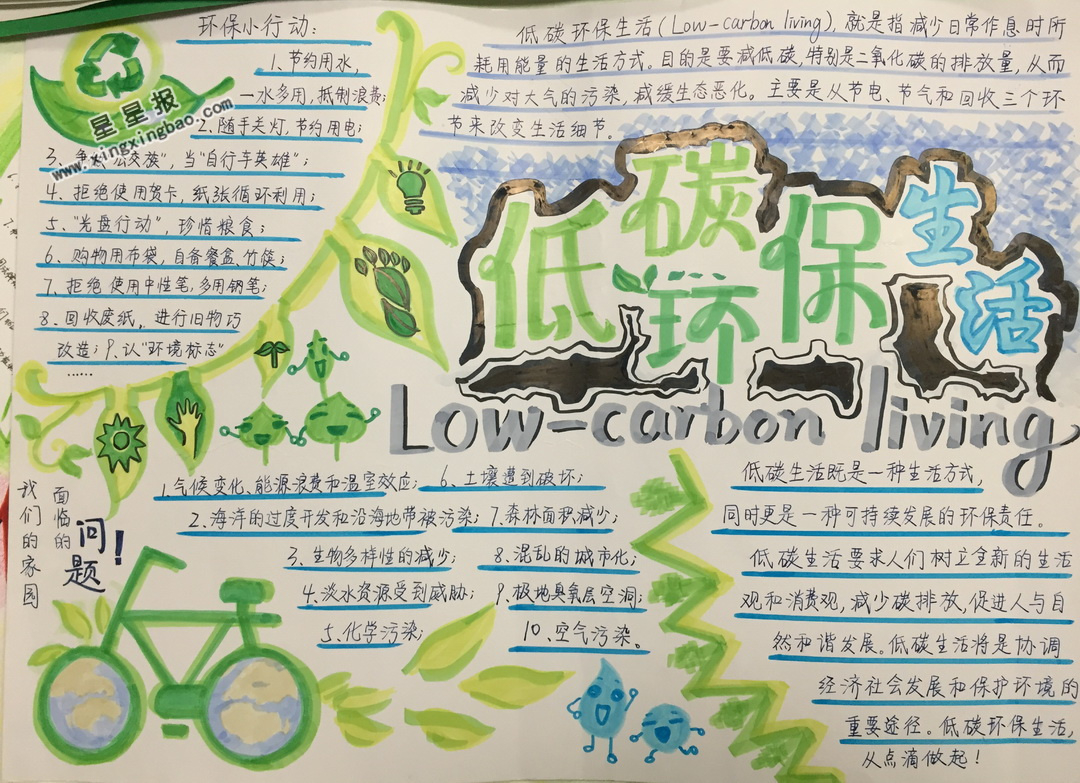 环保小行动:
1.节约用水,
一水多用,抵制浪费;
2.随手关灯,节约用电;
3. 公交族",当"自行车英雄";
4.拒绝使用贺卡,纸张循环利用;
5."光盘行动",珍惜粮食;
6.购物用布袋,自备餐盒竹筷;
7.拒绝使用中性笔,多用钢笔;
8.回收废纸,进行旧物巧
改造;9.认"环境标志"
……
星星报
www.xingxingbao.com
低碳环保生活(Low-carbon living),就是指减少日常作息时所
耗用能量的生活方式。目的是要减低碳,特别是二氧化碳的排放量,从而
减少对大气的污染,减缓生态恶化。主要是从节电、节气和回收三个环
节来改变生活细节。
低碳环保生活
Low-carbon living
我们的家园
面临的
问题!
1.气候变化、能源浪费和温室效应;
2.海洋的过度开发和沿海地带被污染;
3.生物多样性的减少;
4.淡水资源受到威胁;
5.化学污染;
6.土壤遭到破坏;
7.森林面积减少;
8.混乱的城市化;
9.极地臭氧层空洞;
10.空气污染。
低碳生活既是一种生活方式,
同时更是一种可持续发展的环保责任。
低碳生活要求人们树立全新的生活
观和消费观,减少碳排放,促进人与自
然和谐发展。低碳生活将是协调
经济社会发展和保护环境的
重要途径。低碳环保生活,
从点滴做起!